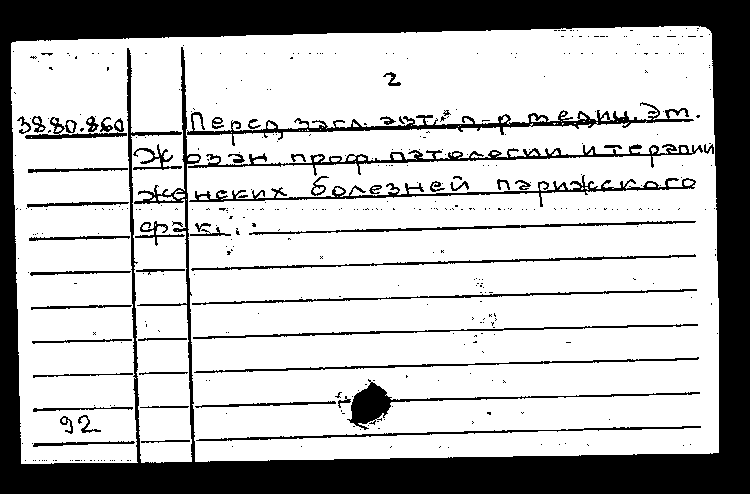 2
38.80.860 Перед загл. авт.: д-р медиц. Эт.
Жозан проф. патологии и терапии
женских болезней парижского
фак. :
92